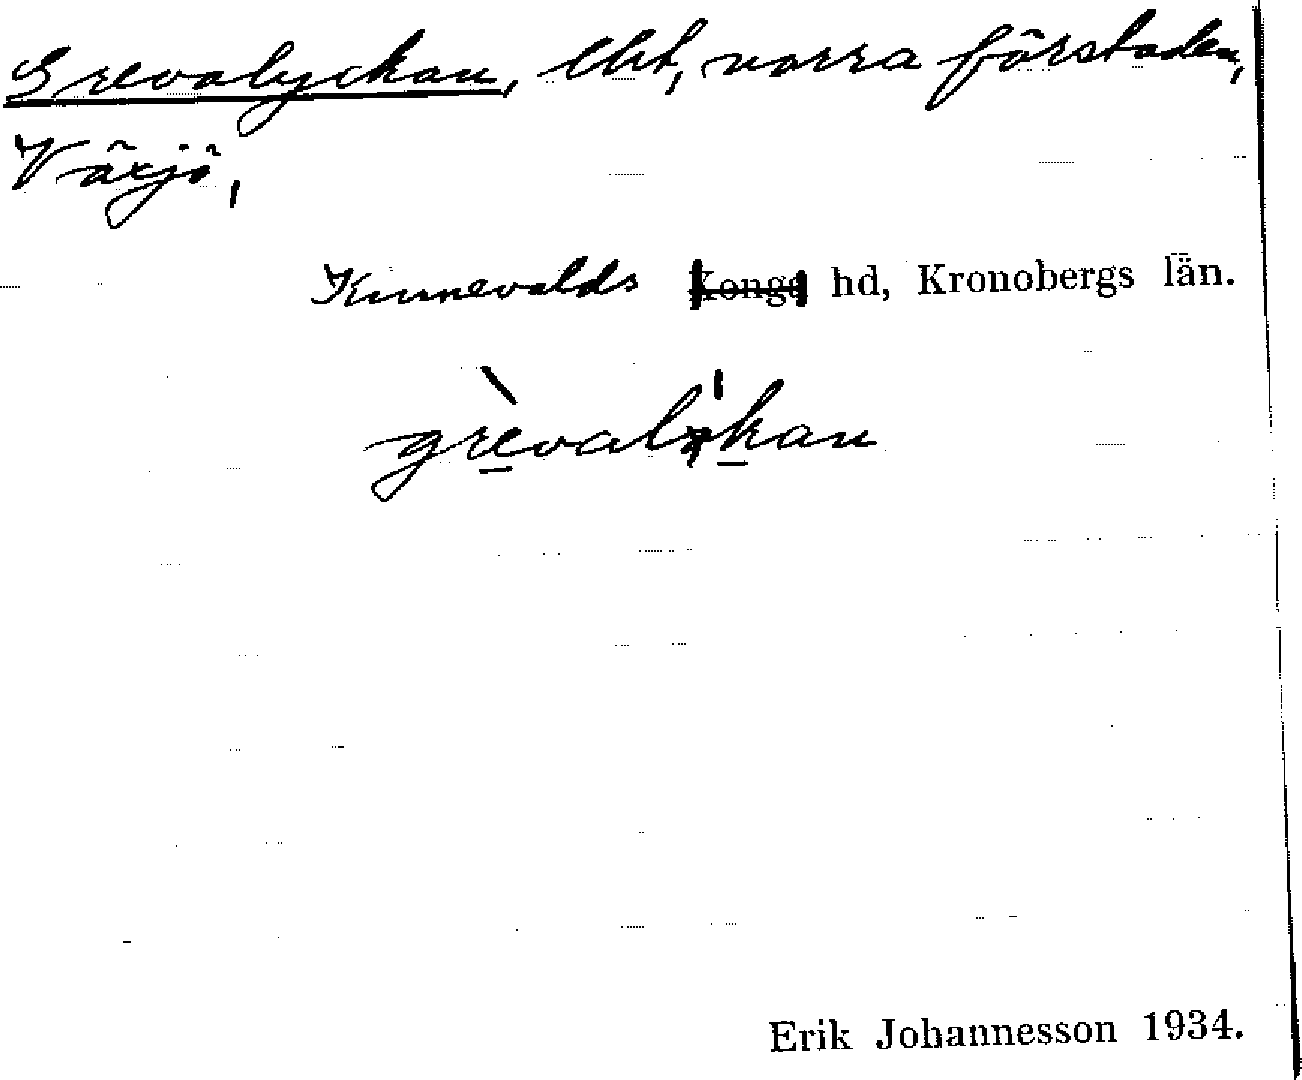 Grevalyckan, lht, norra förstaden,
Växjö,
Kinnevalds Konga hd, Kronobergs län.
grevalykan
Erik Johannesson 1934.